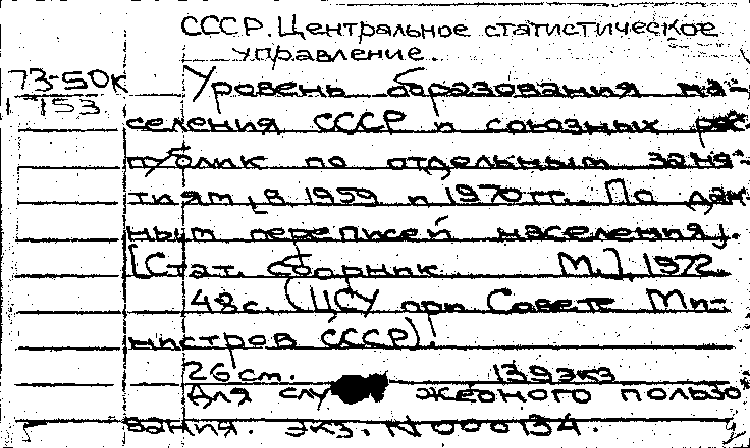 СССР. Центральное статистическое
управление.
73-50к
153
Уровень образования на-
селения СССР и союзных рес
публик по отдельным заня-
тиям [в 1959 и 1970 гг. По дан
ным переписей населения].
[Стат. сборник М.], 1972.
48 с. (ЦСУ при Совете Ми-
нистров СССР).
26 см. 139 экз
Для служебного пользо
вания. экз. N 000134.